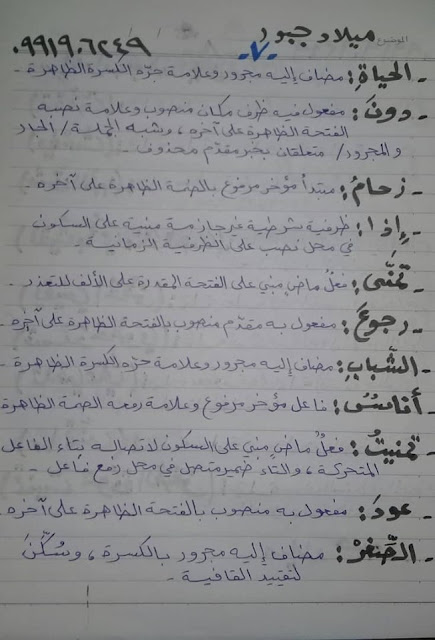 الموضوع ميلاد جبور
-٧-
٠٩٩١٩٠٦٢٤٩
- الحياةِ: مضاف إليه مجرور وعلامة جرّه الكسرة الظاهرة.
- دونَ: مفعول فيه ظرف مكان منصوب وعلامة نصبه
الفتحة الظاهرة على آخره، وشبه الجملة / الجار
والمجرور/ متعلقان بخبر مقدّم محذوف.
- زحامُ: مبتدأ مؤخر مرفوع بالضمة الظاهرة على آخره.
- إذا: ظرفية شرطية غير جازمة مبنية على السكون
في محل نصب على الظرفية الزمانية.
- تمنّى: فعلٌ ماضٍ مبني على الفتحة المقدرة على الألف للتعذر.
- رجوعَ: مفعول به مقدّم منصوب بالفتحة الظاهرة على آخره.
- الشّبابِ: مضاف إليه مجرور وعلامة جرّه الكسرة الظاهرة.
- أناسٌ: فاعل مؤخر مرفوع وعلامة رفعه الضمة الظاهرة
- تمنيتُ: فعلٌ ماضٍ مبني على السكون لاتصاله بتاء الفاعل
المتحركة، والتاء ضمير متصل في محل رفع فاعل.
- عودَ: مفعول به منصوب بالفتحة الظاهرة على آخره.
- الصّغرْ: مضاف إليه مجرور بالكسرة، وسُكّنَ
لتقييد القافية.